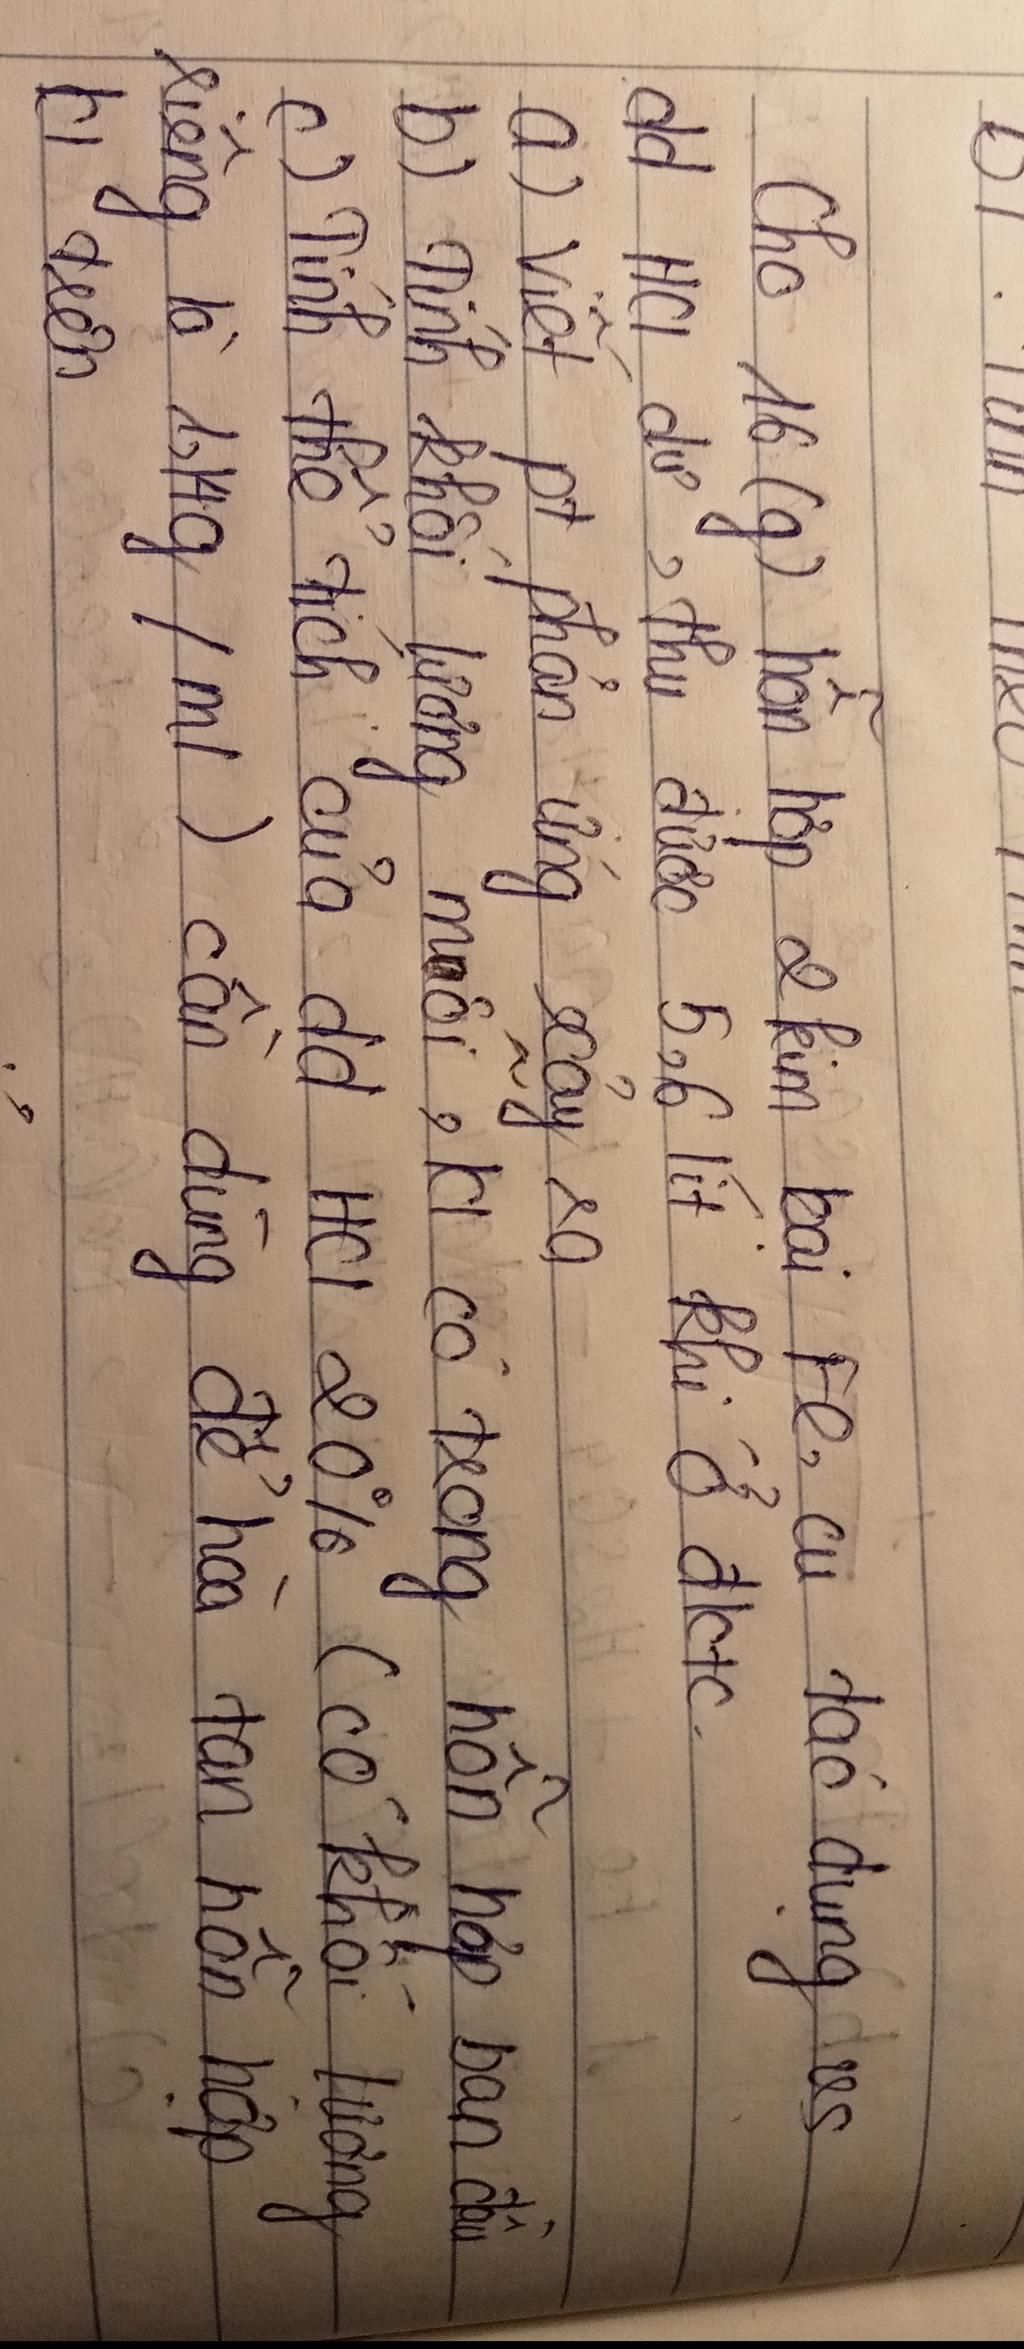 Cho 16 (g) hỗn hợp 2 kim loại Fe, Cu tác dụng vs
dd HCl dư, thu được 5,6 lít khí ở đktc.
a) Viết pt phản ứng xảy ra
b) Tính khối lượng muối, kl có trong hỗn hợp ban đầu
c) Tính thể tích của dd HCl 20% (có khối lượng
riêng là 1,4g/ml) cần dùng để hòa tan hỗn hợp
kl trên